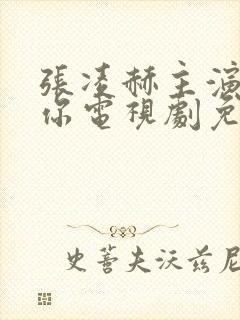 張凌赫主演
你電視劇免
史蒈夫沃兹尼